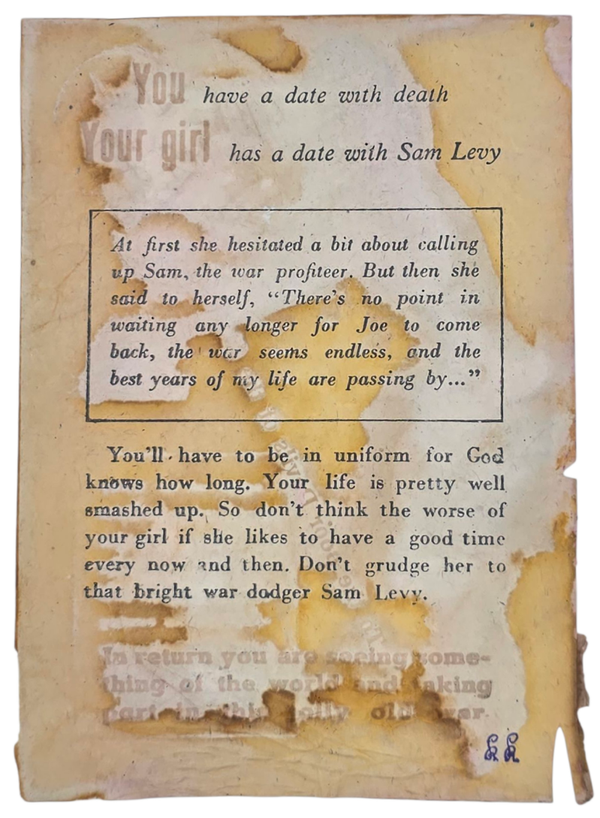 You have a date with death
Your girl has a date with Sam Levy
At first she hesitated a bit about calling
up Sam, the war profiteer. But then she
said to herself, “There's no point in
waiting any longer for Joe to come
back, the war seems endless, and the
best years of my life are passing by...”
You'll have to be in uniform for God
knows how long. Your life is pretty well
smashed up. So don't think the worse of
your girl if she likes to have a good time
every now and then. Don't grudge her to
that bright war dodger Sam Levy.
In return you are seeing some-
thing of the world and taking
part in this jolly old war